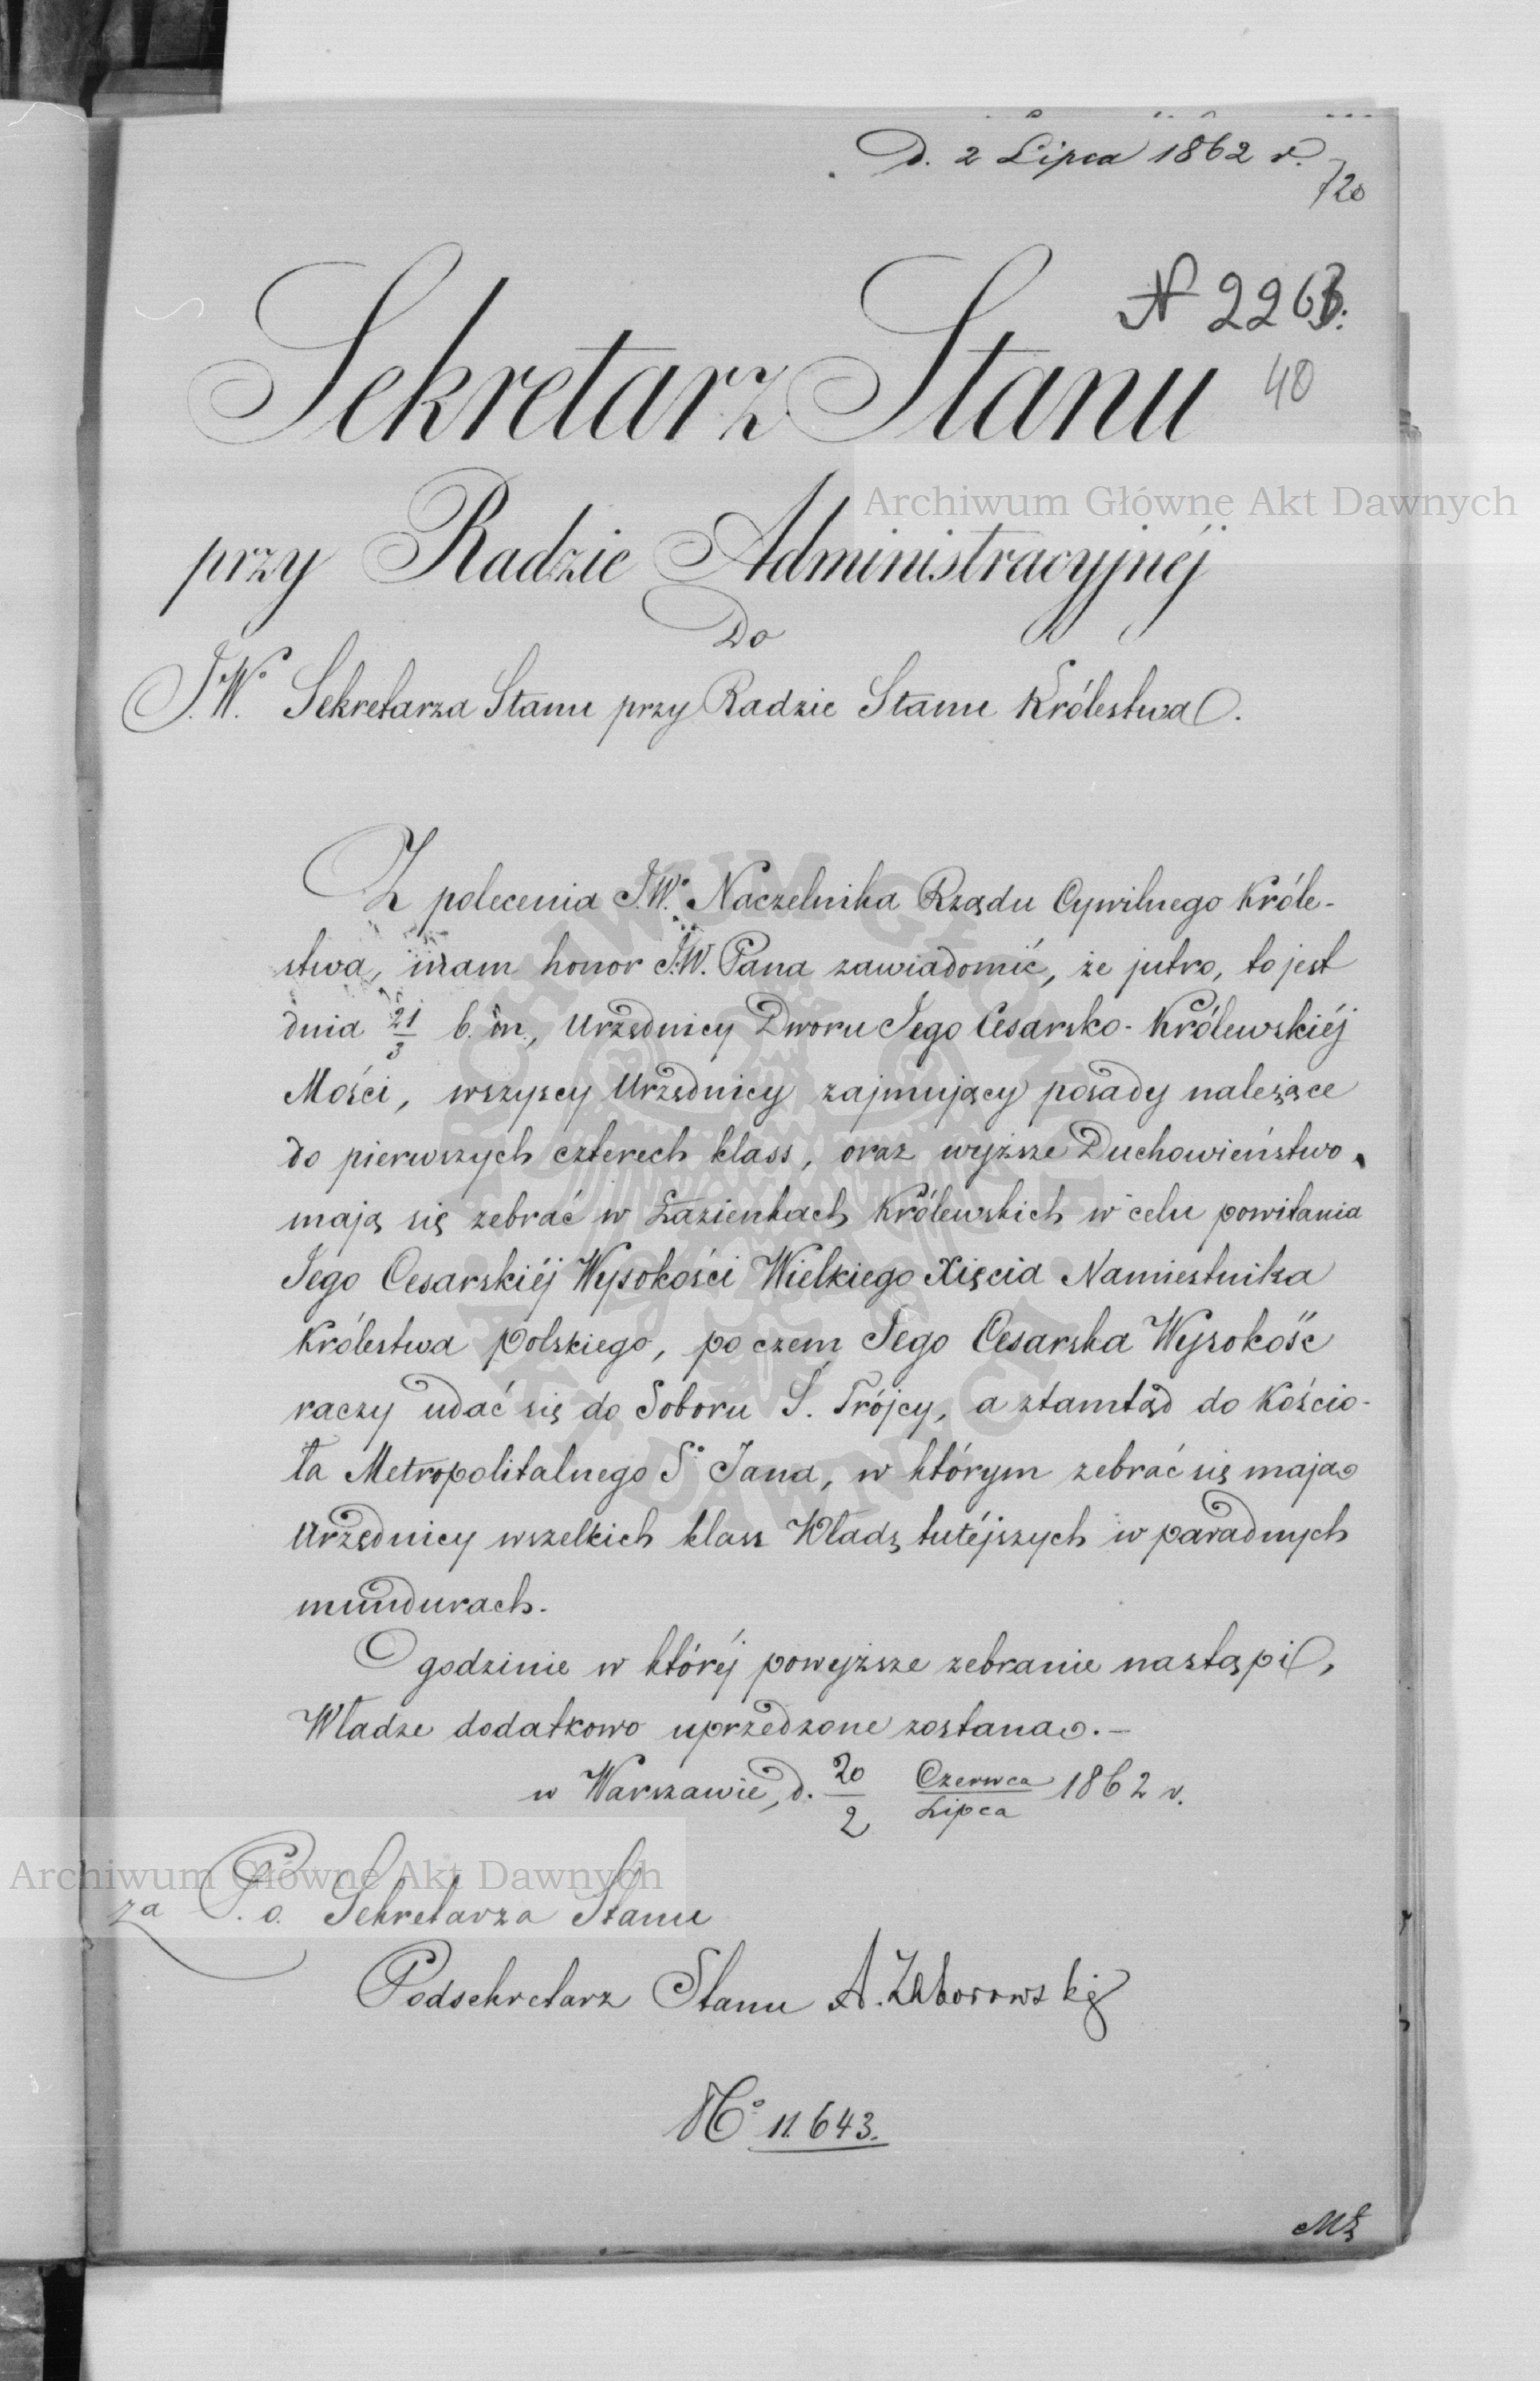 D. 2 Lipca 1862 r.
720
N 2263.
40
Sekretarz Stanu
przy Radzie Administracyjnéj
Do
J.W. Sekretarza Stanu przy Radzie Stanu Królestwa.
Z polecenia J.W. Naczelnika Rządu Cywilnego Króle-
stwa, mam honor J.W. Pana zawiadomić, że jutro, to jest
dnia 21/3 b. m., Urzędnicy Dworu Jego Cesarsko-Królewskiéj
Mości, wszyscy Urzędnicy zajmujący posady należące
do pierwszych czterech klass, oraz wyższe Duchowieństwo,
mają się zebrać w Łazienkach Królewskich w celu powitania
Jego Cesarskiéj Wysokości Wielkiego Xięcia Namiestnika
Królestwa Polskiego, po czem Jego Cesarska Wysokość
raczy udać się do Soboru Ś. Trójcy, a ztamtąd do Kościo-
ła Metropolitalnego Sº Jana, w którym zebrać się mają
Urzędnicy wszelkich klass Władz tutéjszych w paradnych
mundurach.
O godzinie w któréj powyższe zebranie nastąpi,
Władze dodatkowo uprzedzone zostaną.—
w Warszawie, d. 20/2 Czerwca/Lipca 1862 r.
za P. o. Sekretarza Stanu
Podsekretarz Stanu A. Zaborowski
Nº 11.643.
Archiwum Główne Akt Dawnych
Archiwum Główne Akt Dawnych
ARCHIWUM GŁÓWNE AKT DAWNYCH